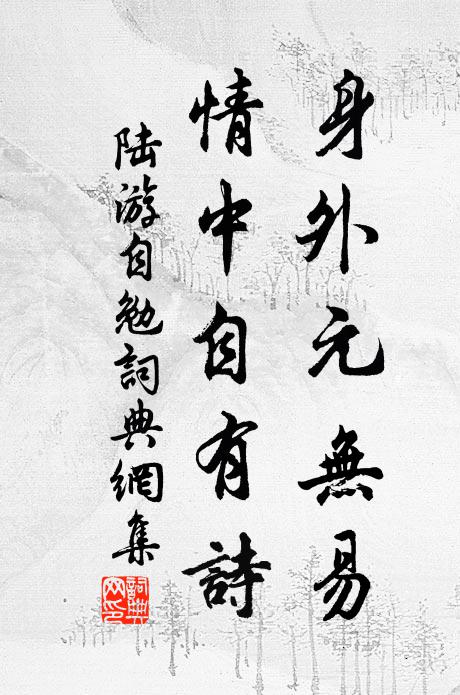 身外元無易
情中自有詩
陆游自勉詞典網集
詞典